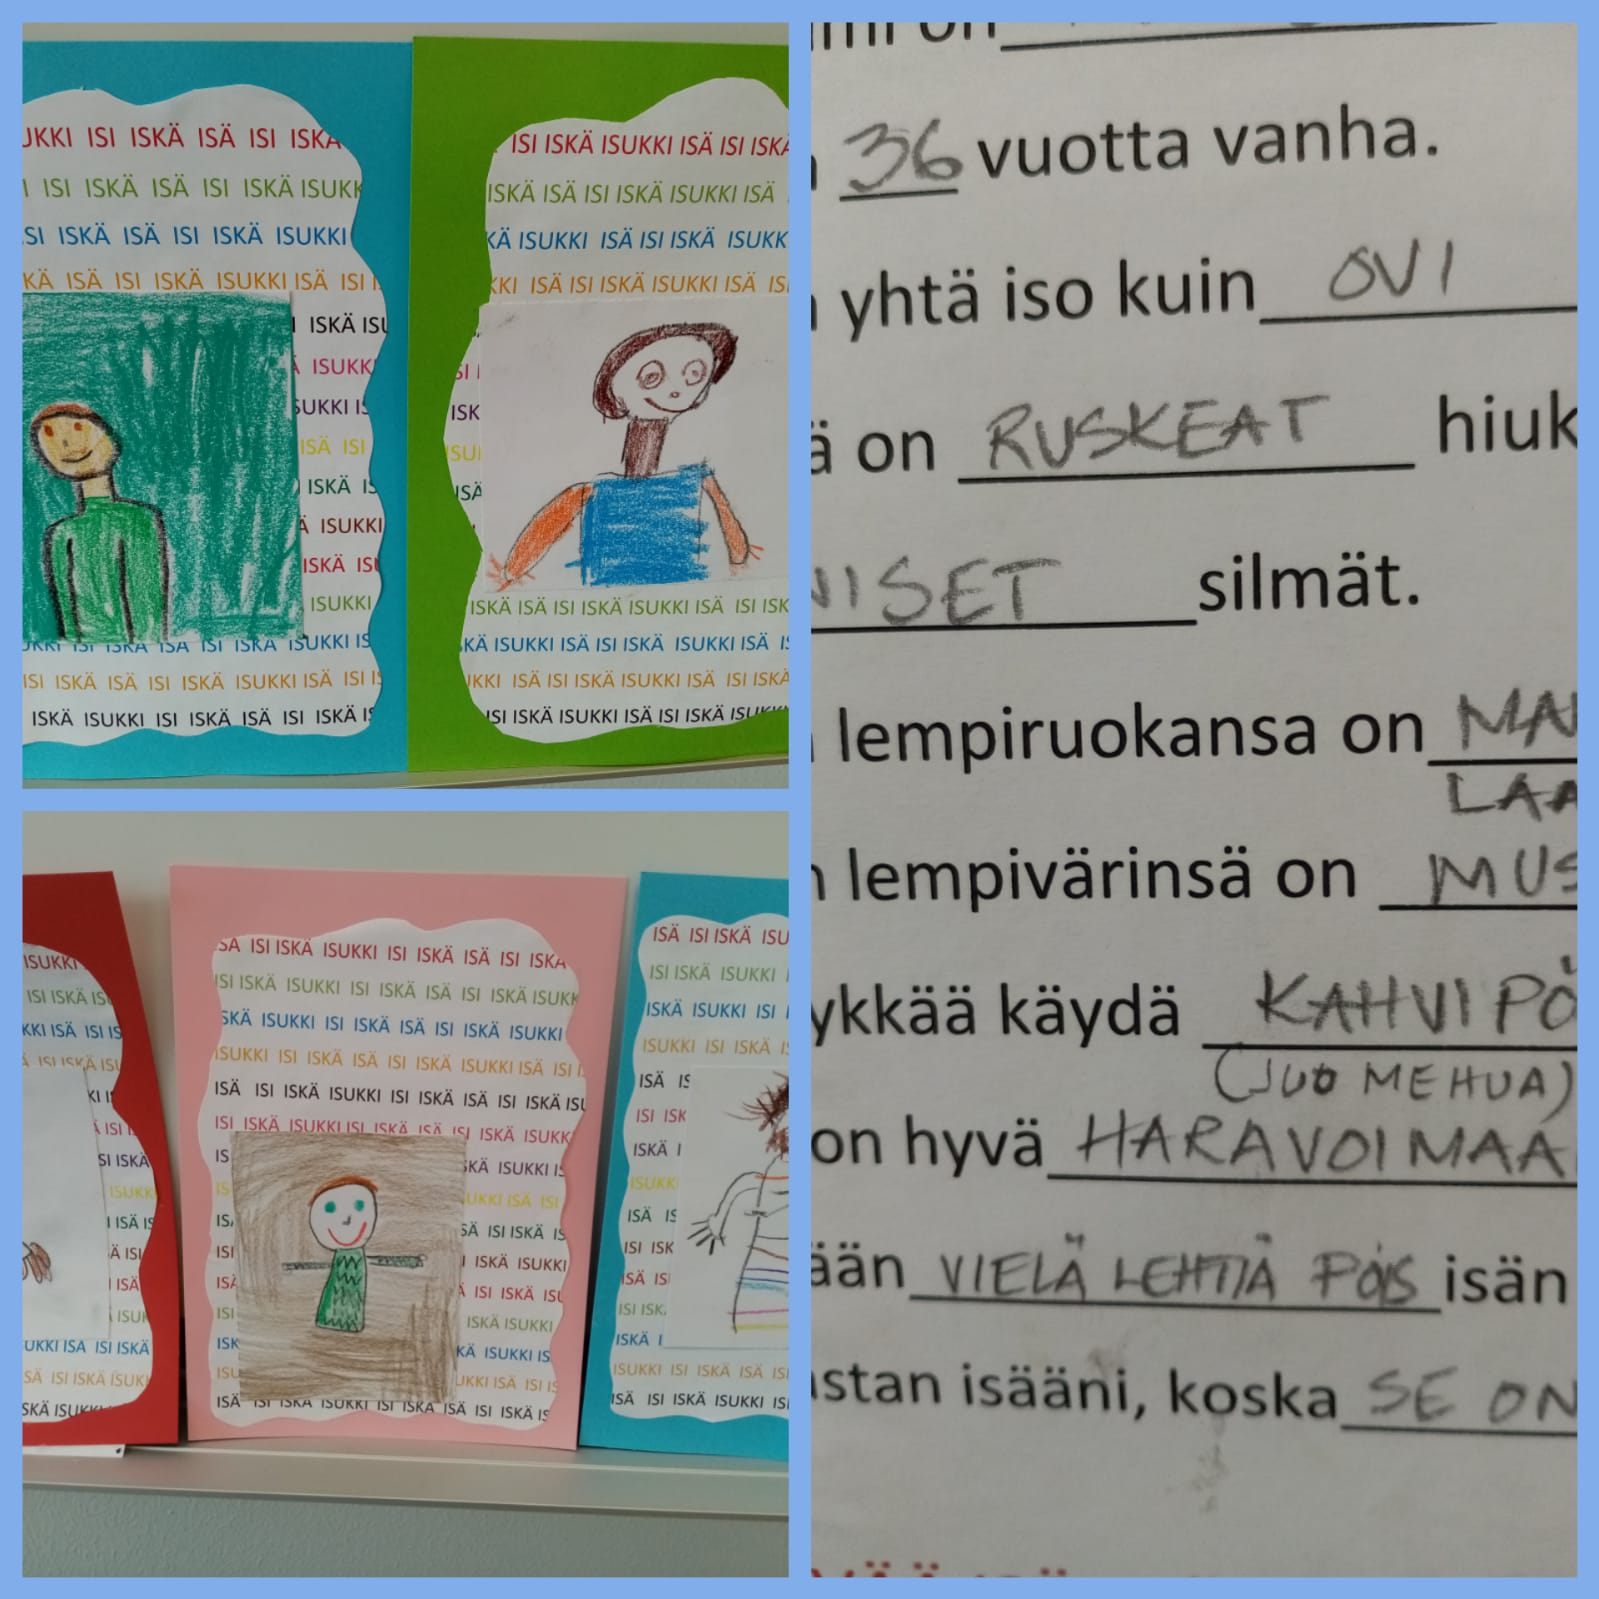 UKKI ISI ISKÄ ISÄ ISI ISKÄ
ISI ISKÄ ISÄ ISI ISKÄ ISUKK
SI ISKÄ ISÄ ISI ISKÄ ISUKKI
KÄ ISÄ ISI ISKÄ ISUKKI ISÄ ISI
ISKÄ ISU
ISUKK
SUKKI IS
ISÄ ISI
ISKÄ IS
ISUKKI
ISKÄ ISU
ISUKKI
UKKI ISI ISKÄ ISÄ ISI ISKÄ ISUKKI IS
ISI ISKÄ ISÄ ISI ISKÄ ISUKKI ISÄ ISI
ISKÄ ISUKKI ISI ISKÄ ISÄ ISI ISKÄ IS
ISI ISKÄ ISUKKI ISÄ ISI ISKÄ
ISKÄ ISÄ ISI ISKÄ ISUKKI ISÄ
KÄ ISUKKI ISÄ ISI ISKÄ ISUKK
KKI ISÄ ISI ISKÄ ISUKKI ISÄ ISI
SI
ISK
ISU
ISÄ
ISKÄ ISÄ ISI ISKÄ ISUKKI ISÄ ISI ISK
KÄ ISUKKI ISÄ ISI ISKÄ ISUKKI ISÄ
UKKI ISÄ ISI ISKÄ ISUKKI ISÄ ISI ISKÄ
ISI ISKÄ ISUKKI ISÄ ISI ISKÄ ISUKKI
ISUKKI
ISI ISKÄ ISU
KKI ISÄ ISI IS
ISI ISKÄ ISU
KI I
Ä ISI I
SI ISKÄ
ISUKKI
ISÄ IS
Ä ISI
ISÄ
ISUKKI
UKKI ISÄ ISI ISKÄ
SÄ ISI ISKÄ ISUKK
SKÄ ISUKKI
ISÄ ISI ISKÄ ISUKKI ISI ISKÄ ISÄ ISI ISKÄ
ISI ISKÄ ISUKKI ISI ISKÄ ISÄ ISI ISKÄ ISUKK
ISKÄ ISUKKI ISI ISKÄ ISÄ ISI ISKÄ ISUKKI
ISUKKI ISI ISKÄ ISÄ ISI ISKÄ ISUKKI ISÄ ISI
ISÄ ISI ISKÄ ISUKKI ISI ISKÄ ISÄ ISI ISKÄ ISU
ISI ISKÄ ISUKKI ISI ISKÄ ISÄ ISI ISKÄ ISUKK
IS
SKÄ ISUKKI IS
ISU
UKKI ISÄ ISI
IS
SÄ ISI ISKÄ IS
ISI
ISKÄ ISUKKI
ISÄ
ISI ISKÄ ISU
ISI
ISKÄ ISUKKI
ISK
KÄ ISUKKI IS
ISU
UKKI ISÄ ISI IS
ISÄ ISI ISKÄ ISUKKI ISI ISKÄ ISÄ ISI ISKÄ IS
ISÄ ISI ISKÄ ISU
ISI ISKÄ ISUKKI
ISKÄ ISUKKI ISI
ISUKKI ISI ISKÄ
ISÄ IS
ISI ISK
ISKÄ I
ISUKK
ISÄ IS
ISI ISK
ISÄ ISI
ISI ISKÄ
ISKÄ I
ISUKKI ISI ISKÄ ISÄ ISI
ISÄ ISI ISKÄ ISUKKI ISI
on
36 vuotta vanha.
yhtä iso kuin OVI
ä on RUSKEAT hiuk
NISET silmät.
lempiruokansa on MA
LAA
n lempivärinsä on MUS
ykkää käydä KAHVIPÖ
(JUO MEHUA)
on hyvä HARAVOIMAA
ään VIELÄ LEHTIÄ POIS isän
stan isääni, koska SE ON